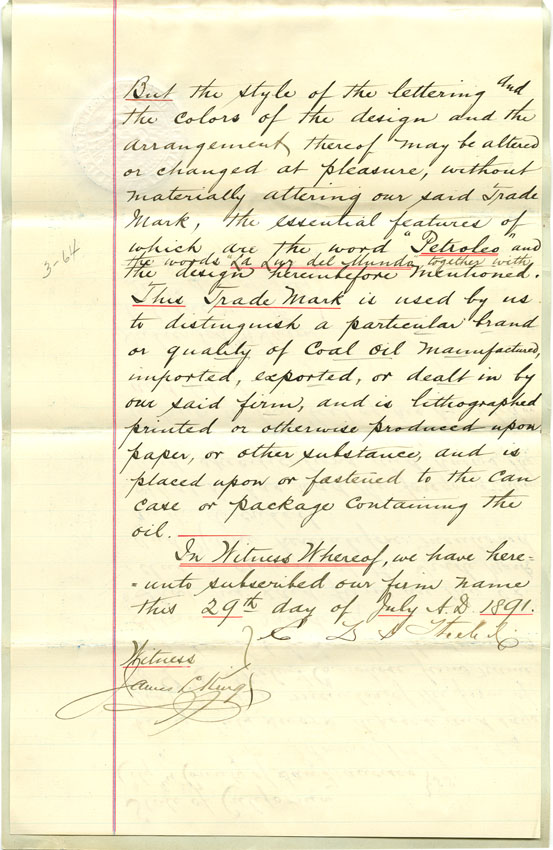 But the style of the lettering and
the colors of the design and the
arrangement thereof may be altered
or changed at pleasure, without
materially altering our said Trade
Mark, the essential features of
which are the word "Petroleo" and
the words "La Luz del Mundo" together with
the design hereinbefore mentioned.
This Trade Mark is used by us
to distinguish a particular brand
or quality of Coal Oil manufactured,
imported, exported, or dealt in by
our said firm, and is lithographed
printed or otherwise produced upon
paper, or other substance, and is
placed upon or fastened to the can
case or package containing the
oil.
In Witness Whereof, we have here=
=unto subscribed our firm name
this 29th day of July A.D. 1891.
Witness
James L. King
3-64